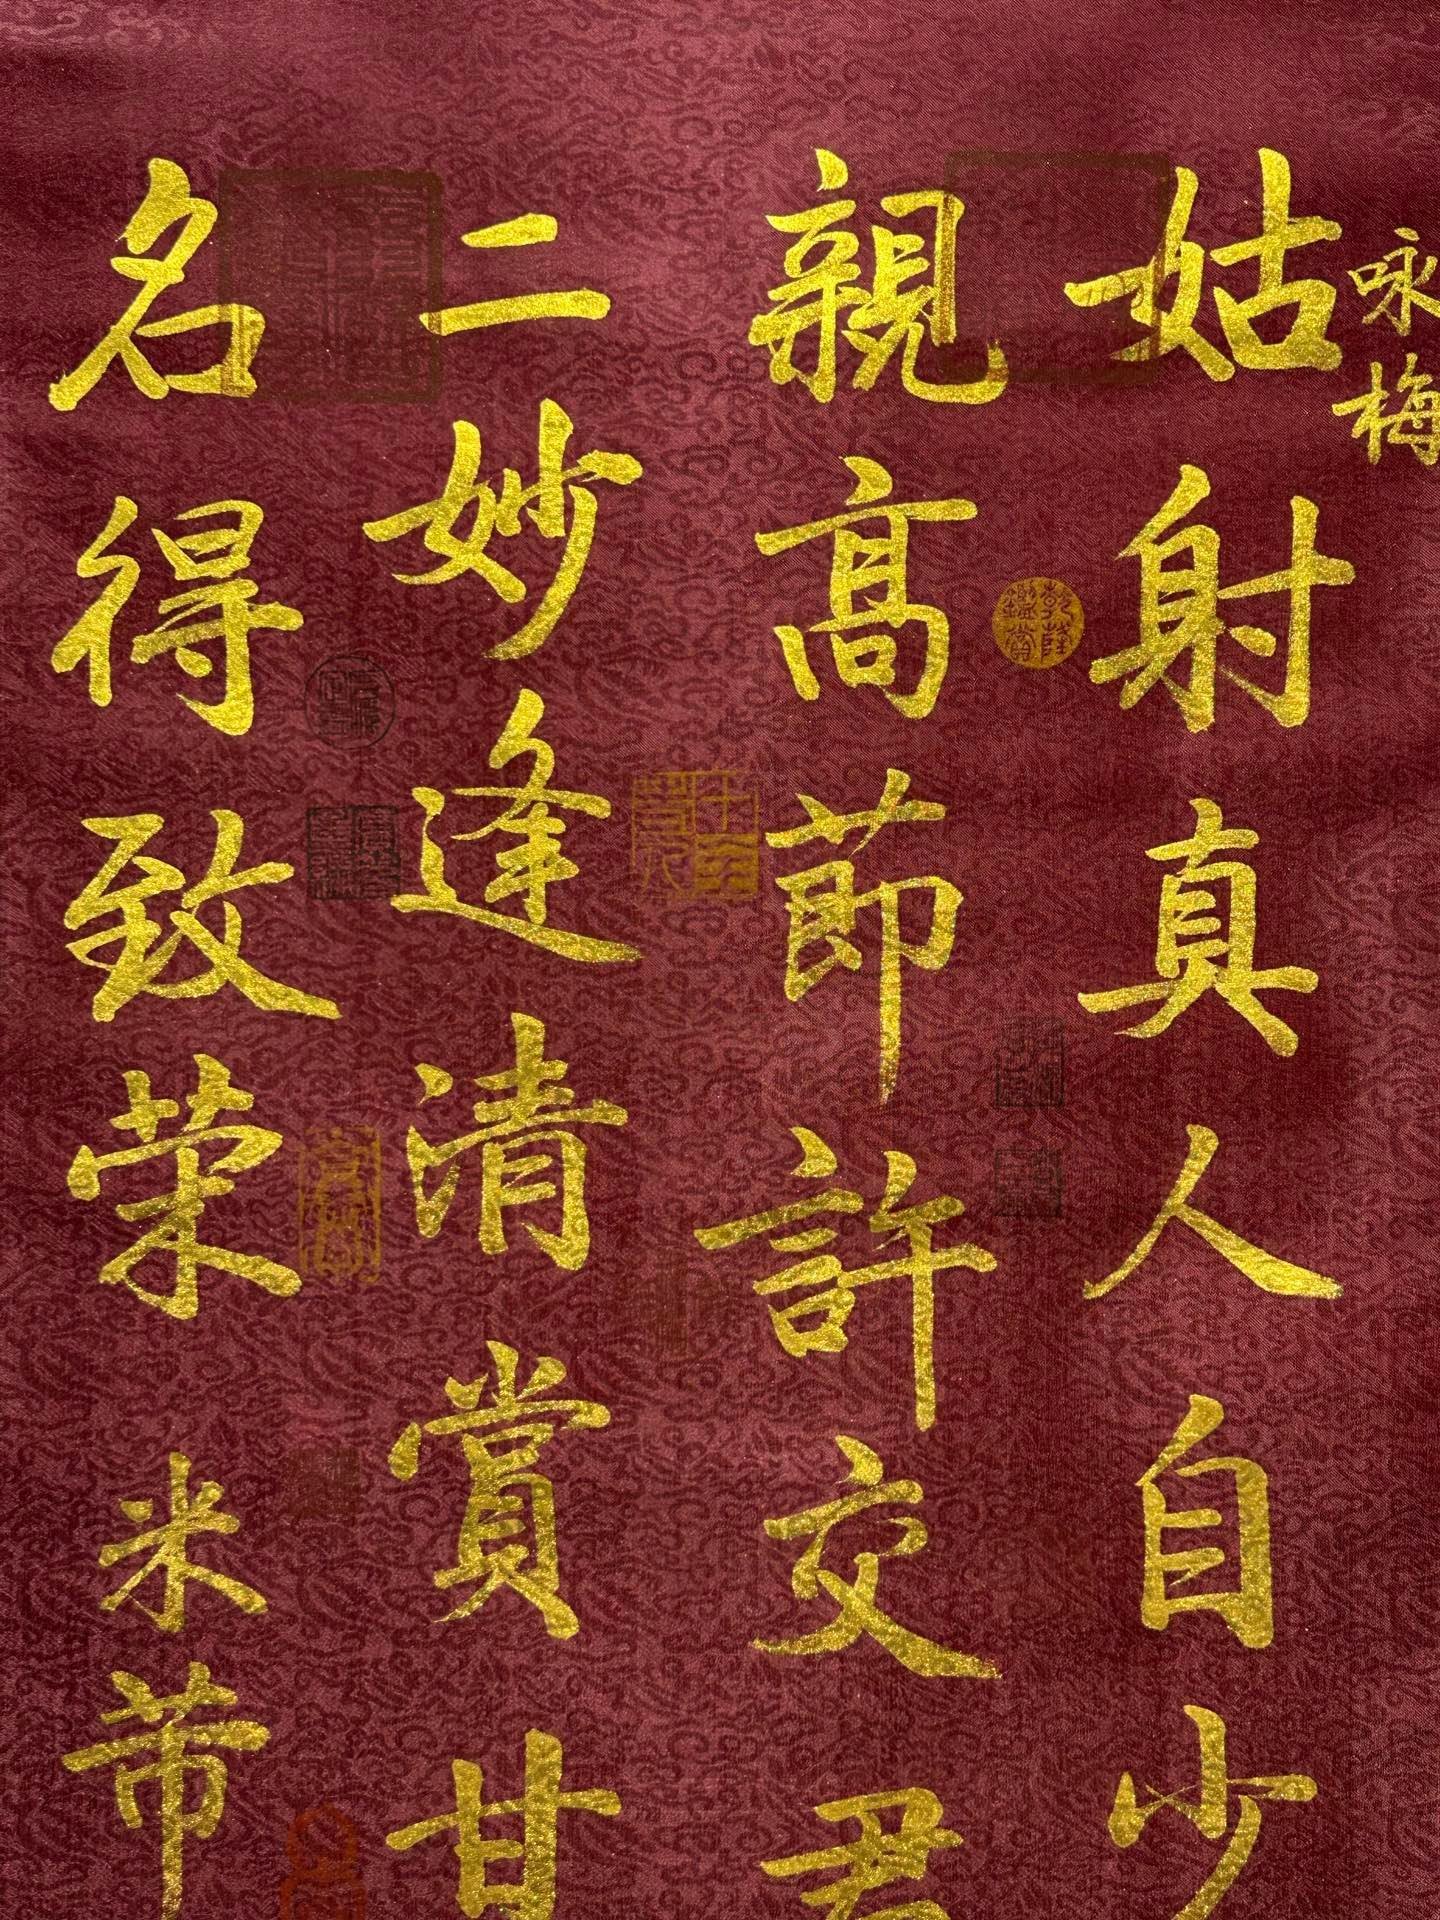 咏梅
姑射真人自少
親高節許交君
二妙逢清賞甘
名得致荣 米芾